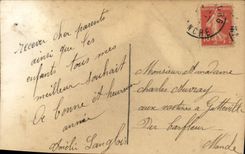 recever cher parents
ainsi que tous les
enfants tous mes
meilleur souhait
de bonne et heureuse
année
Amélie Langlois
Monsieur et madame
charles
aux à Gatteville
Par barfleur
Manche